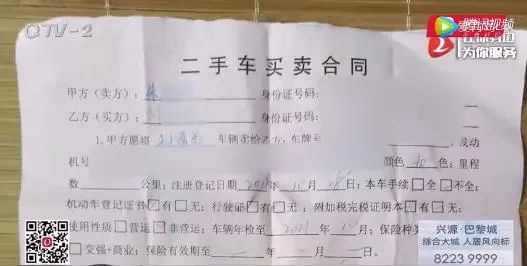 QTV-2
爱奇艺视频
为你服务
二手车买卖合同
甲方（卖方）：朱 身份证号码：
乙方（买方）：刘 身份证号码：
1.甲方愿将 车辆卖给乙方，车牌号 ，发动
机号 颜色 色；里程
数 公里；注册登记日期 年 月 日；本车手续□全□不全；
机动车登记证 有□无；行驶证 有□无；附加税完税证明本□有□无；
使用性质□营运 非营运；车辆年检至 2021 年 月；保险种类
□交强+商业；保险有效期至 年 月 日
兴源·巴黎城
综合大城 人居风向标
8223 9999